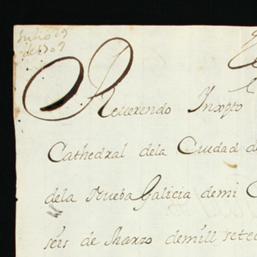 Julio 29
de 1709
Reverendo Inxpto
Cathedral dela Ciudad d
dela Nueba Galicia demi C
seis de Marzo demill sete